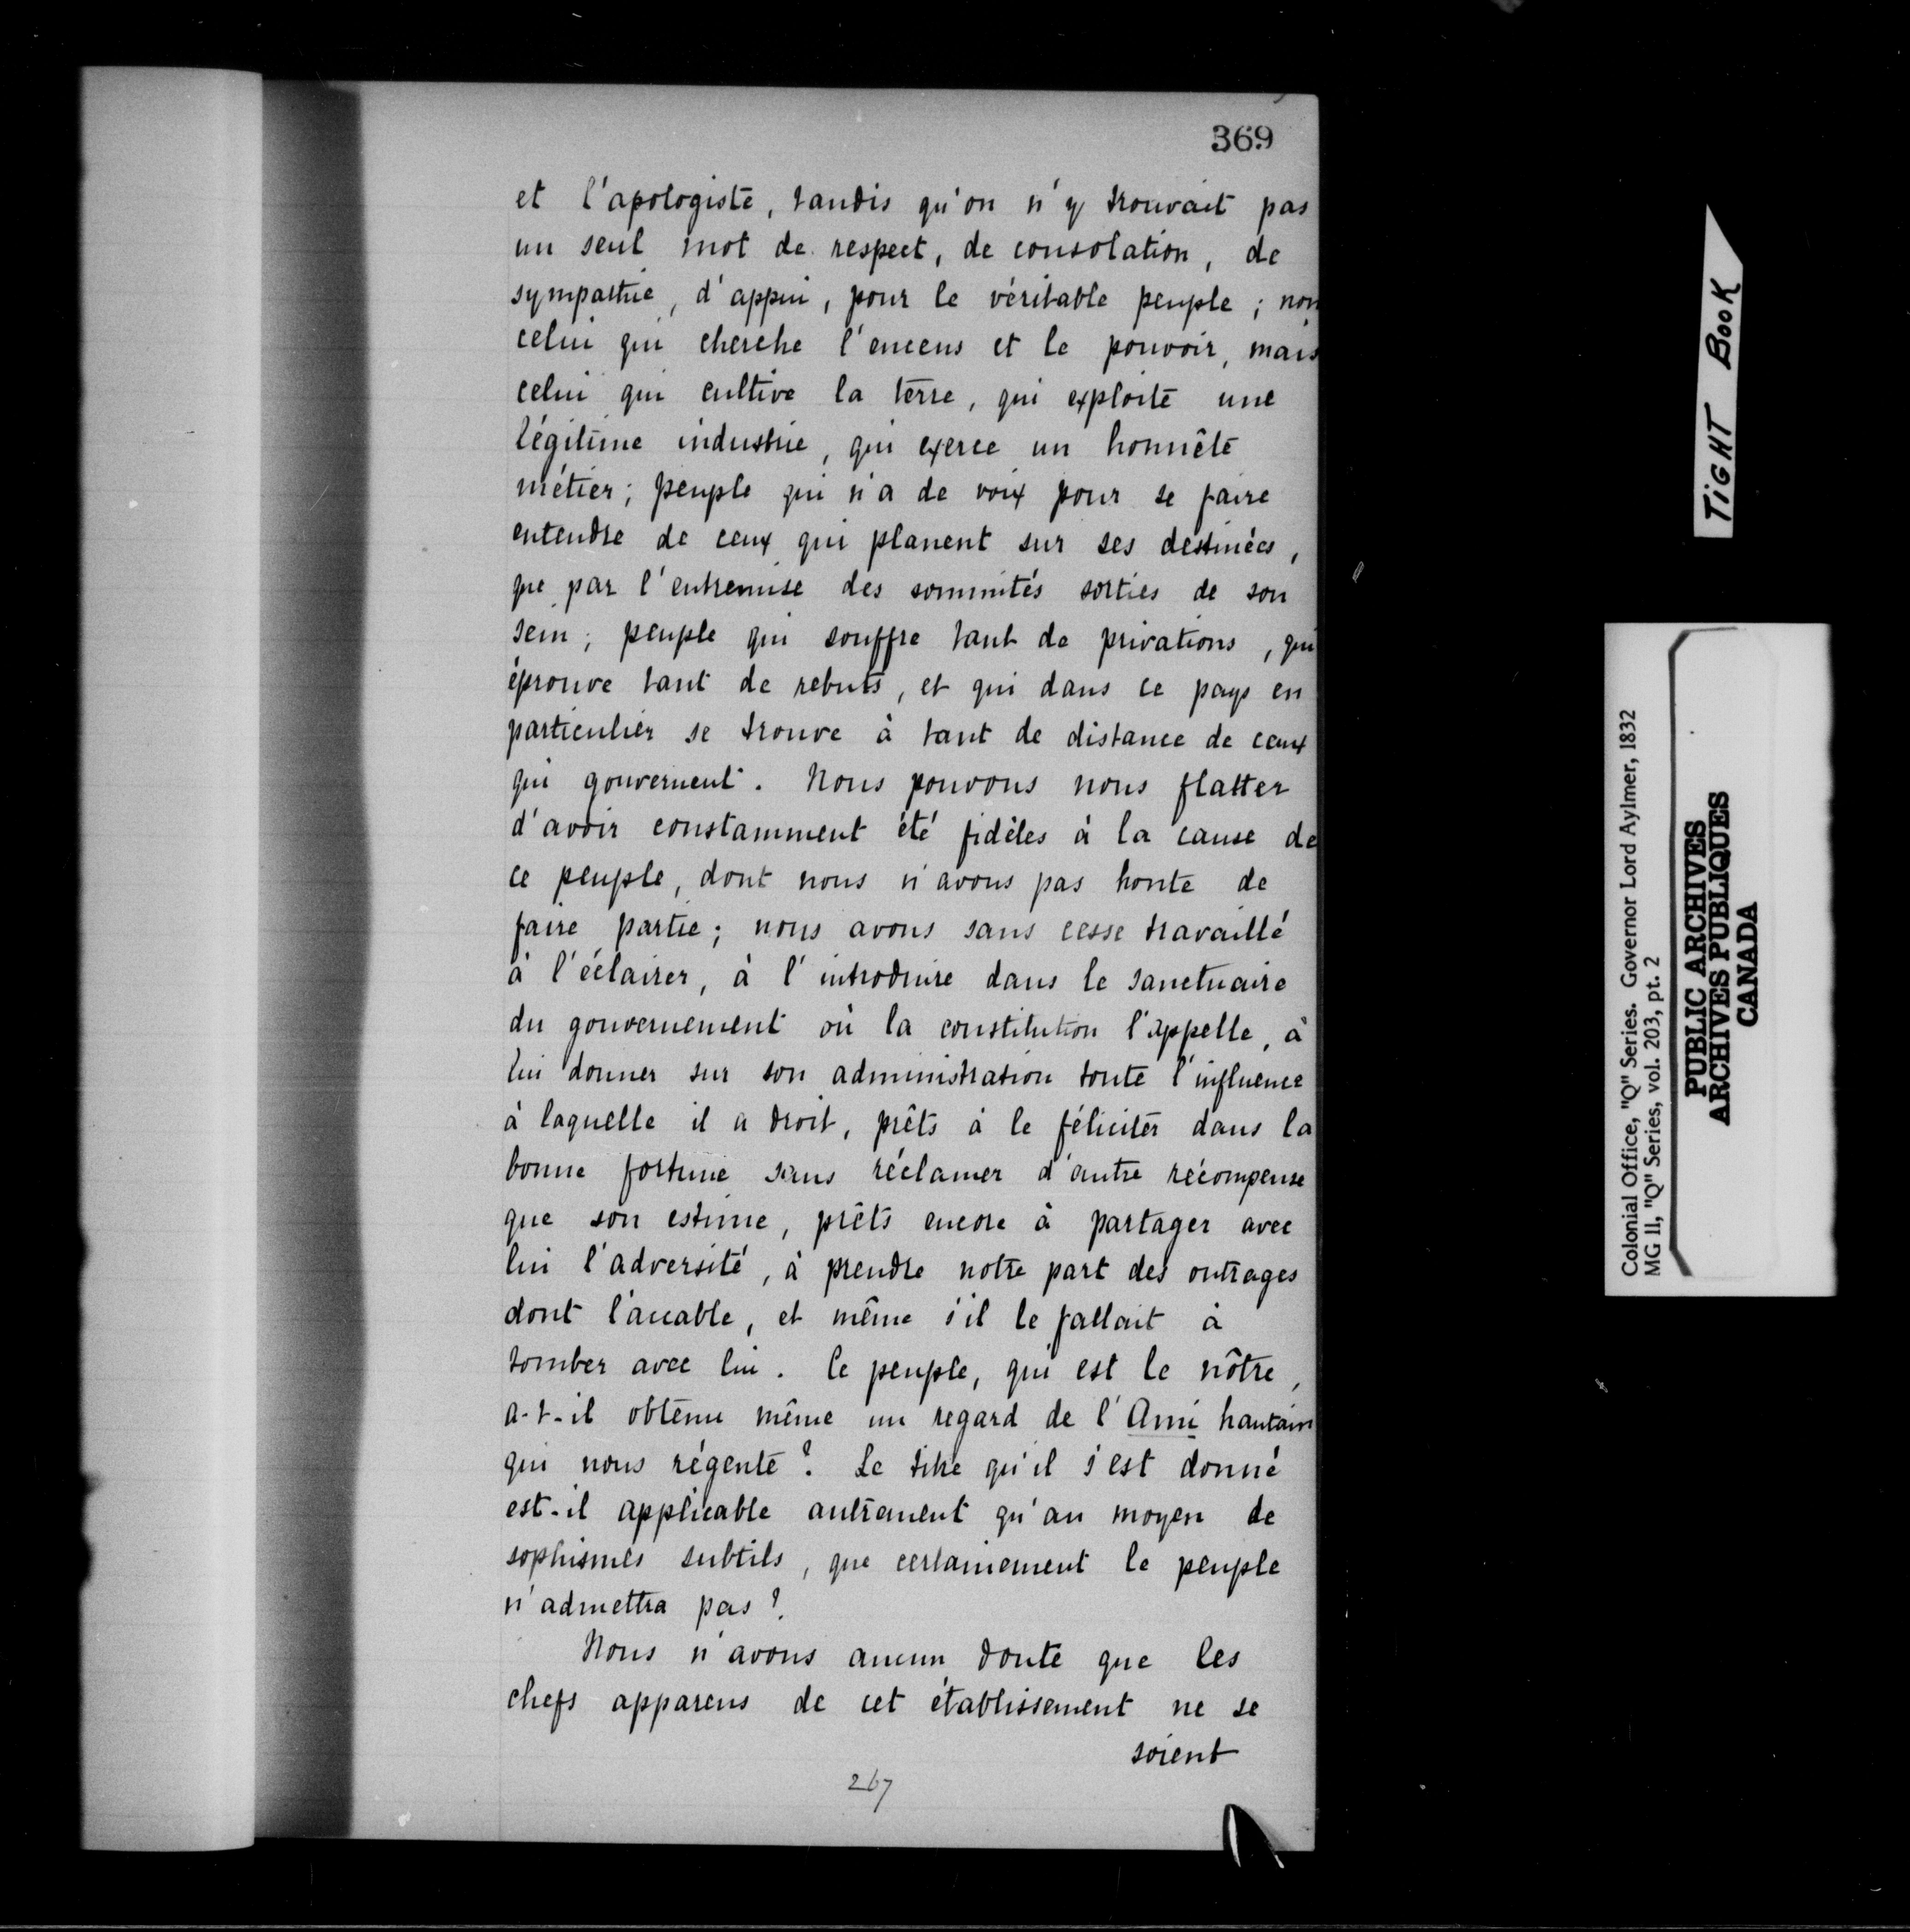 369
et l'apologiste, tandis qu'on n'y trouvait pas
un seul mot de respect, de consolation, de
sympathie, d'appui, pour le véritable peuple ; non
celui qui cherche l'encens et le pouvoir, mais
celui qui cultive la terre, qui exploite une
légitime industrie, qui exerce un honnête
métier ; peuple qui n'a de voix pour se faire
entendre de ceux qui planent sur ses destinées,
que par l'entremise des sommités sorties de son
sein ; peuple qui souffre tant de privations, qui
éprouve tant de rebuts, et qui dans ce pays en
particulier se trouve à tant de distance de ceux
qui gouvernent. Nous pouvons nous flatter
d'avoir constamment été fidèles à la cause de
ce peuple, dont nous n'avons pas honte de
faire partie ; nous avons sans cesse travaillé
à l'éclairer, à l'introduire dans le sanctuaire
du gouvernement où la constitution l'appelle, à
lui donner sur son administration toute l'influence
à laquelle il a droit, prêts à le féliciter dans la
bonne fortune sans réclamer d'autre récompense
que son estime, prêts encore à partager avec
lui l'adversité, à prendre notre part des outrages
dont l'accable, et même s'il le fallait à
tomber avec lui. Ce peuple, qui est le nôtre,
a-t-il obtenu même un regard de l'Ami hautain
qui nous régente ? Le titre qu'il s'est donné
est-il applicable autrement qu'au moyen de
sophismes subtils, que certainement le peuple
n'admettra pas ?
Nous n'avons aucun doute que les
chefs apparens de cet établissement ne se
soient
267
TIGHT BOOK
Colonial Office, "Q" Series. Governor Lord Aylmer, 1832
MG 11, "Q" Series, vol. 203, pt. 2
PUBLIC ARCHIVES
ARCHIVES PUBLIQUES
CANADA